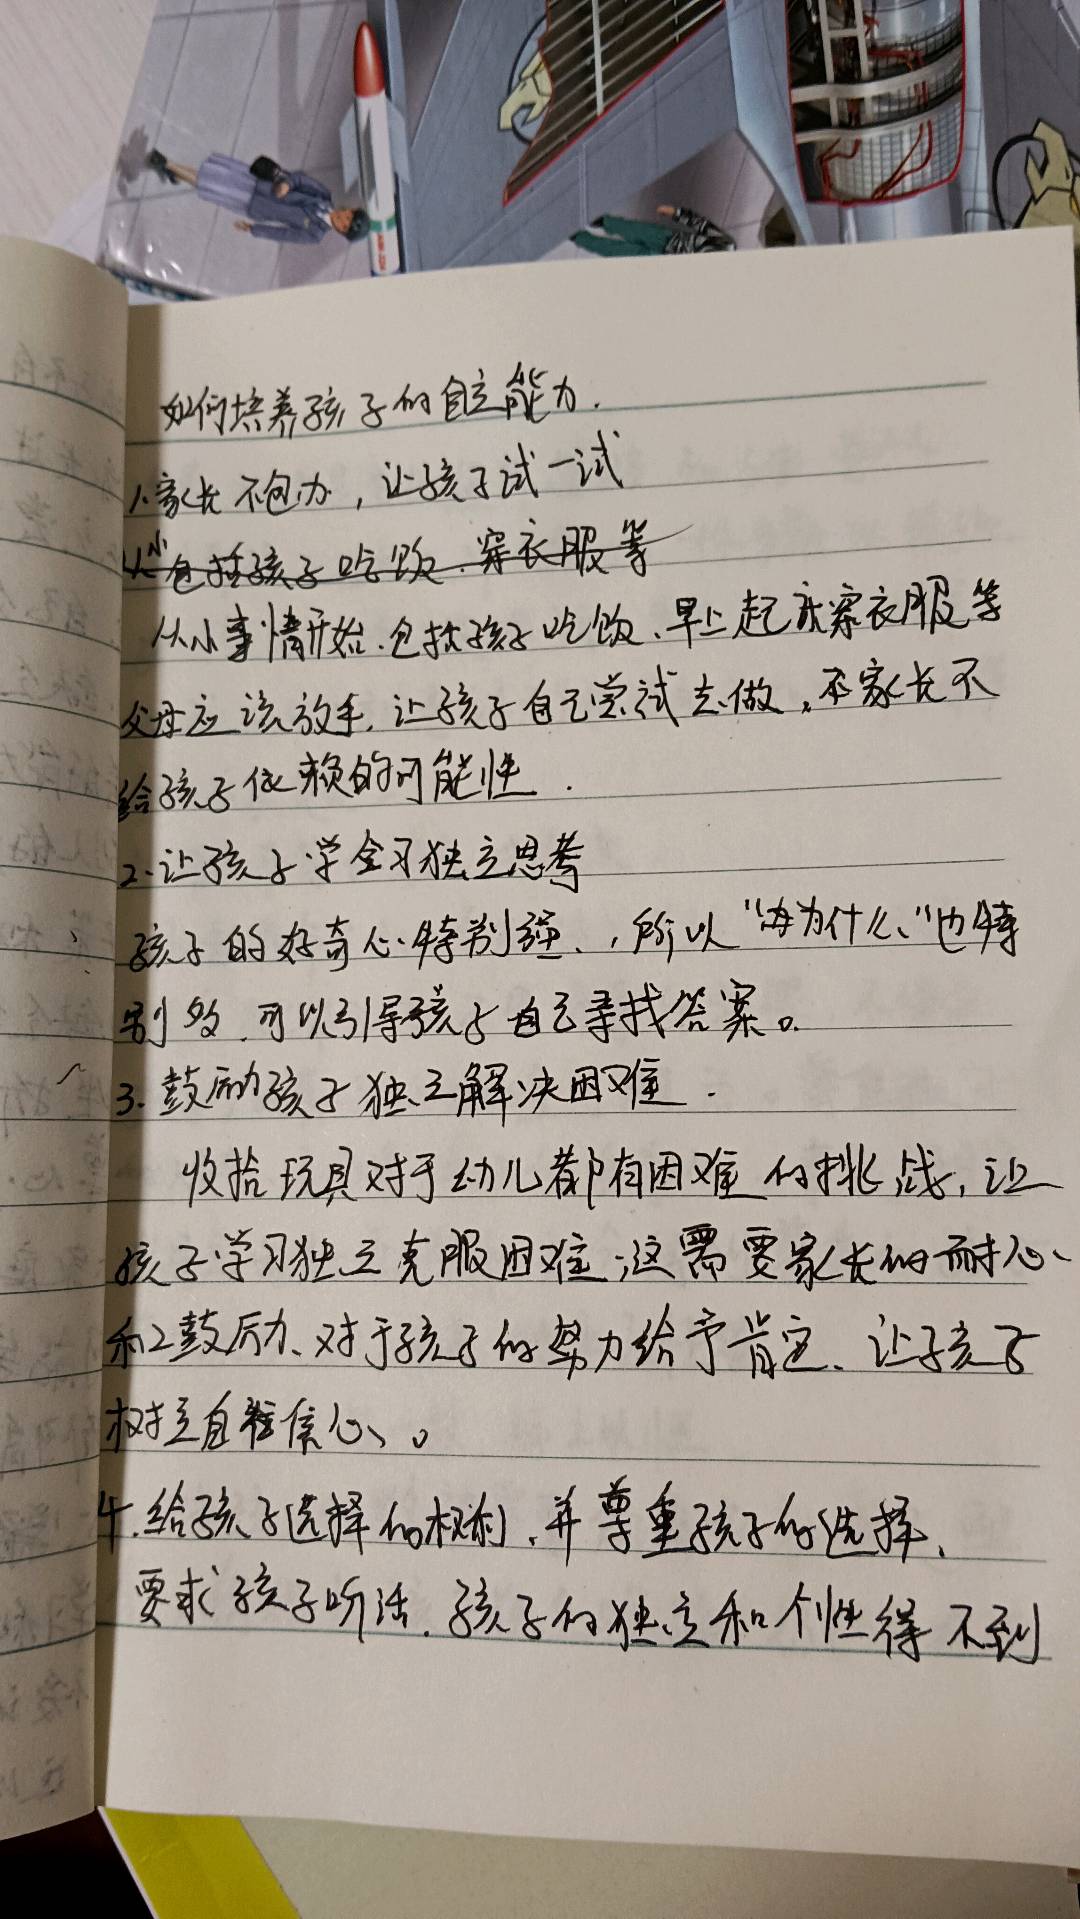 如何培养孩子的自立能力.
1.家长不包办，让孩子试一试
从小包括孩子吃饭、穿衣服等
从小事情开始.包括孩子吃饭、早上起床穿衣服等
父母应该放手,让孩子自己尝试去做，不家长不
给孩子依赖的可能性.
2.让孩子学会习独立思考
孩子的好奇心特别强、，所以“为什么”也特
别多,可以引导孩子自己寻找答案。
3.鼓励孩子独立解决困难.
收拾玩具对于幼儿都有困难的挑战,让
孩子学习独立克服困难,这需要家长的耐心
和鼓励、对于孩子的努力给予肯定、让孩子
树立自信心、。
4.给孩子选择的权利,并尊重孩子的选择,
要求孩子听话.孩子的独立和个性得不到